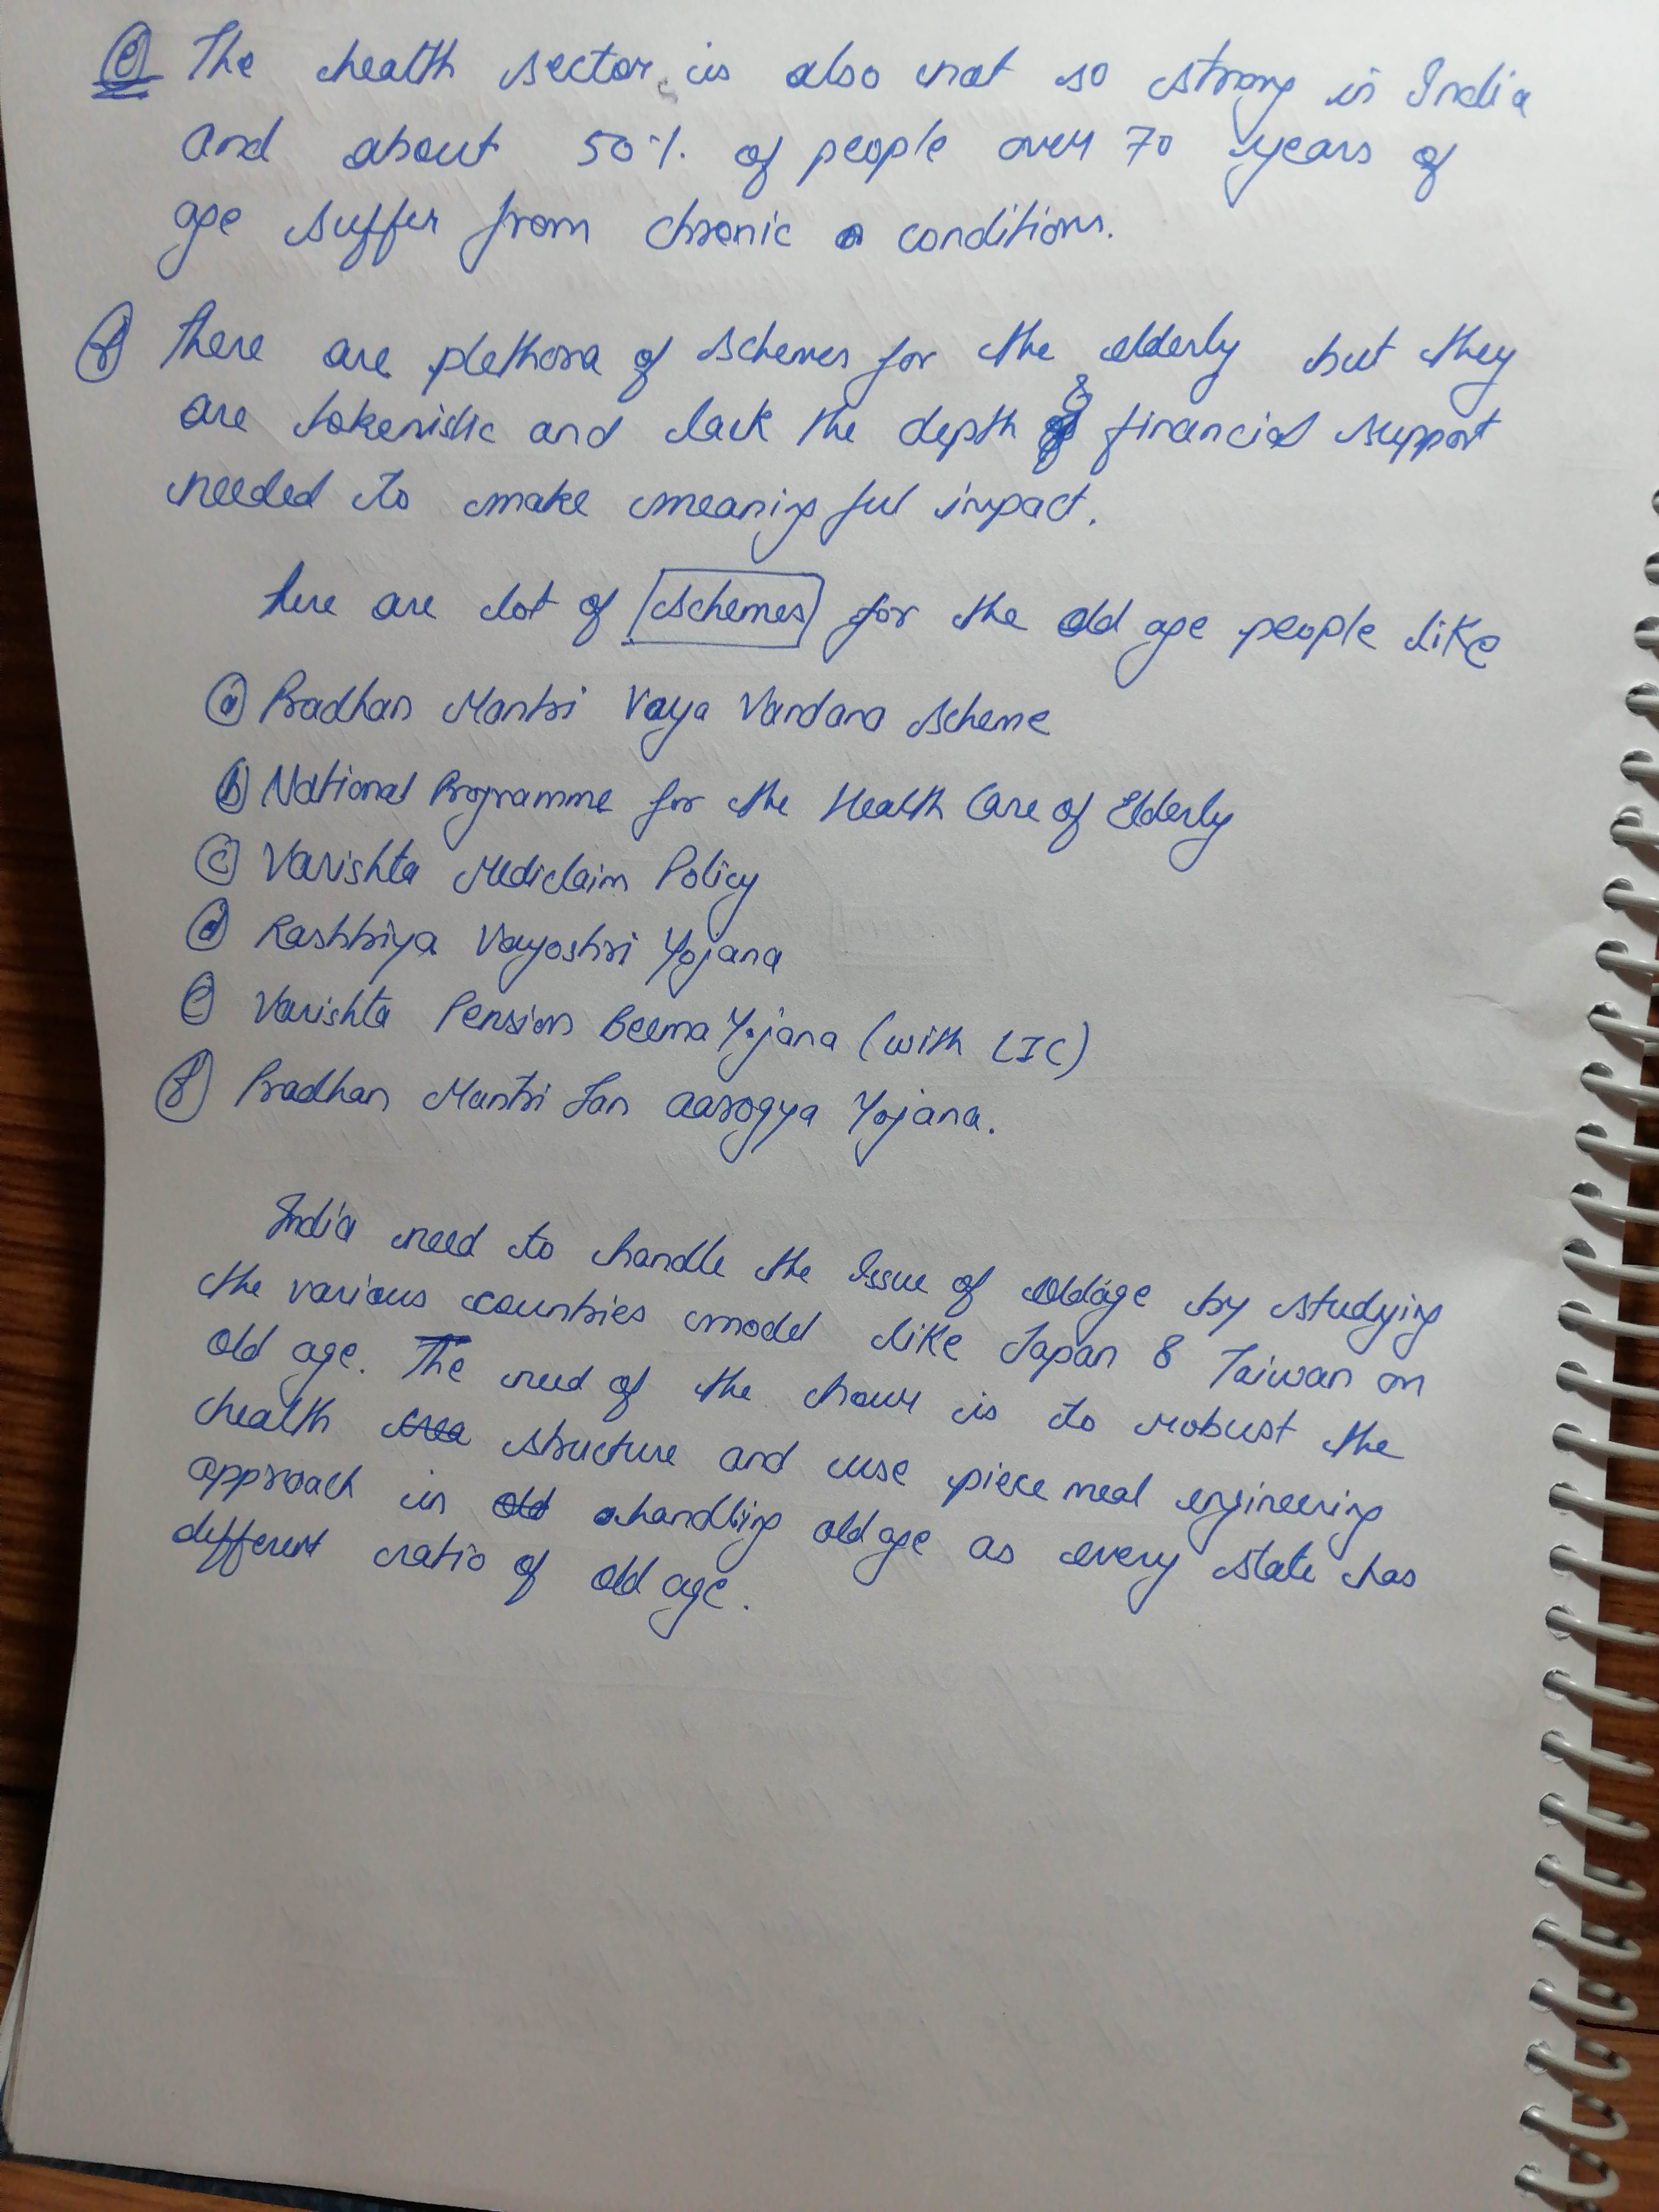 (e) The health sector is also not so strong in India
and about 50% of people over 70 years of
age suffer from chronic conditions.
(f) There are plethora of schemes for the elderly but they
are tokenistic and lack the depth & financial support
needed to make meaningful impact.
here are lot of schemes for the old age people like
(a) Pradhan Mantri Vaya Vandana scheme
(b) National Programme for the Health Care of Elderly
(c) Varishta Mediclaim Policy
(d) Rashtriya Vayoshri Yojana
(e) Varishta Pension Beema Yojana (with LIC)
(f) Pradhan Mantri Jan aarogya Yojana.
India need to handle the Issue of oldage by studying
the various countries model like Japan & Taiwan on
old age. The need of the hour is to robust the
health structure and use piece meal engineering
approach in handling old age as every state has
different ratio of old age.